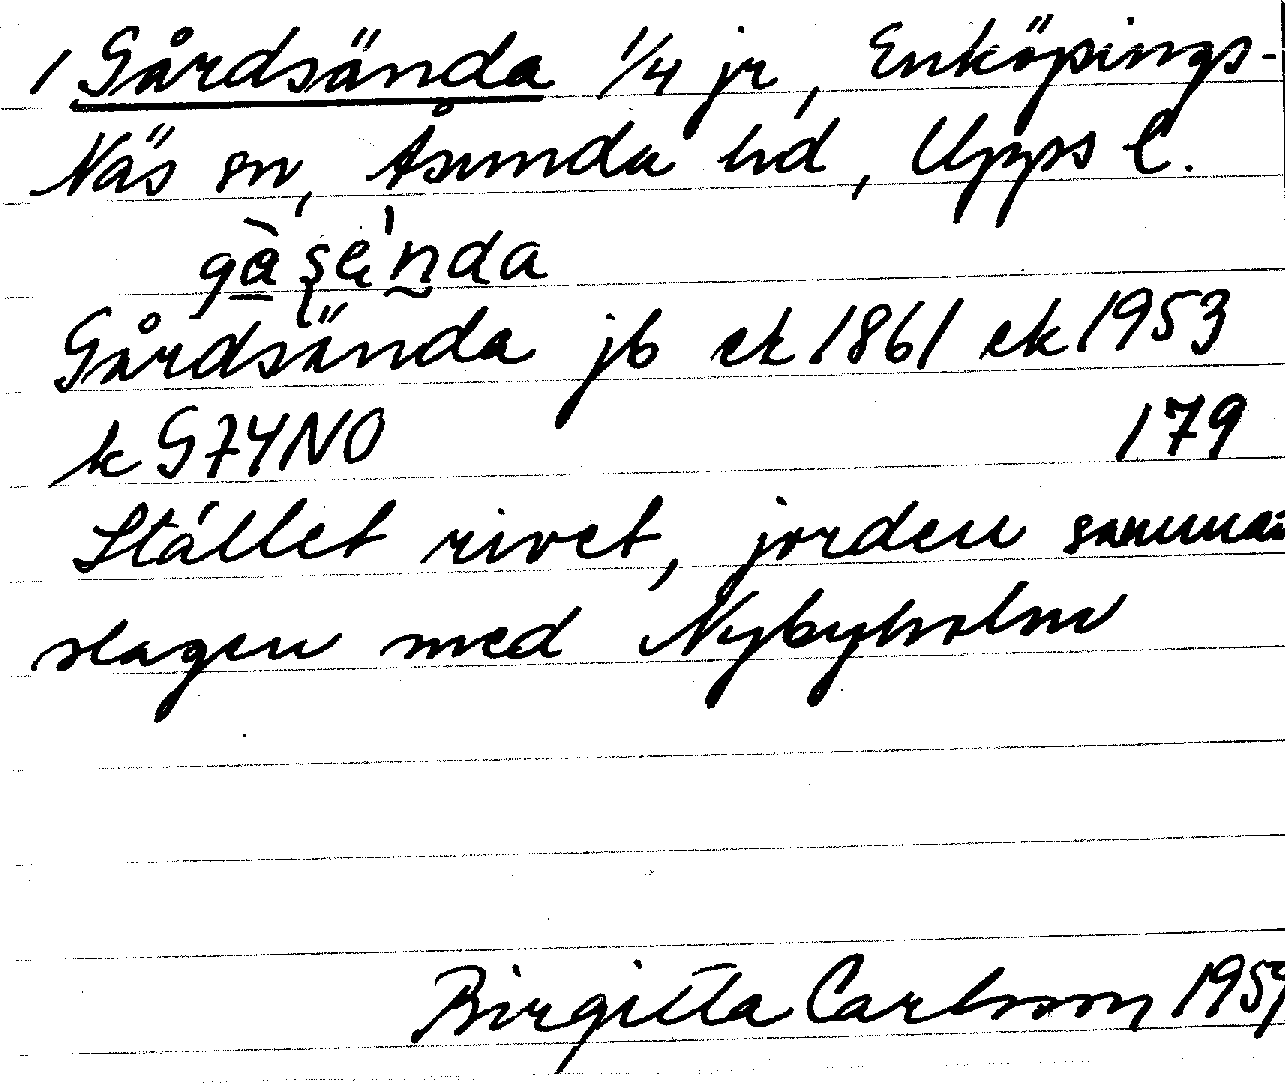 1 Gårdsända 1/4 jr, Enköpings-
Näs sn, Åsunda hd, Upps l.
Gårdsända jb ek 1861 ek 1953
k G74NO 179
Stället rivet, jorden samman
slagen med Nybyholm
Birgitta Carlsson